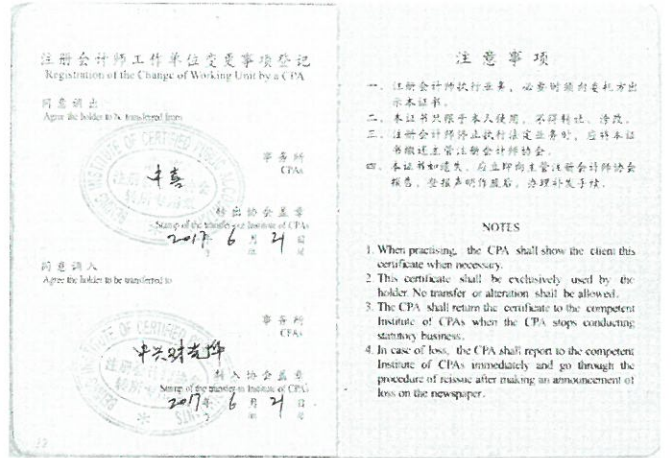 注册会计师工作单位变更事项登记
Registration of the Change of Working Unit by a CPA
同意调出
Agree the holder to be transferred from
中喜
事务所
CPAs
转出协会盖章
Stamp of the transfer-out Institute of CPAs
2017年 6 月 21 日
同意调入
Agree the holder to be transferred to
事务所
CPAs
中兴财光华
转入协会盖章
Stamp of the transfer-in Institute of CPAs
2017年 6 月 21 日
12
注意事项
一、注册会计师执行业务，必要时须向委托方出
示本证书。
二、本证书只限于本人使用，不得转让、涂改。
三、注册会计师停止执行法定业务时，应将本证
书缴还主管注册会计师协会。
四、本证书如遗失，应立即向主管注册会计师协会
报告，登报声明作废后，办理补发手续。
NOTES
1. When practising, the CPA shall show the client this
certificate when necessary.
2. This certificate shall be exclusively used by the
holder. No transfer or alteration shall be allowed.
3. The CPA shall return the certificate to the competent
Institute of CPAs when the CPA stops conducting
statutory business.
4. In case of loss, the CPA shall report to the competent
Institute of CPAs immediately and go through the
procedure of reissue after making an announcement of
loss on the newspaper.